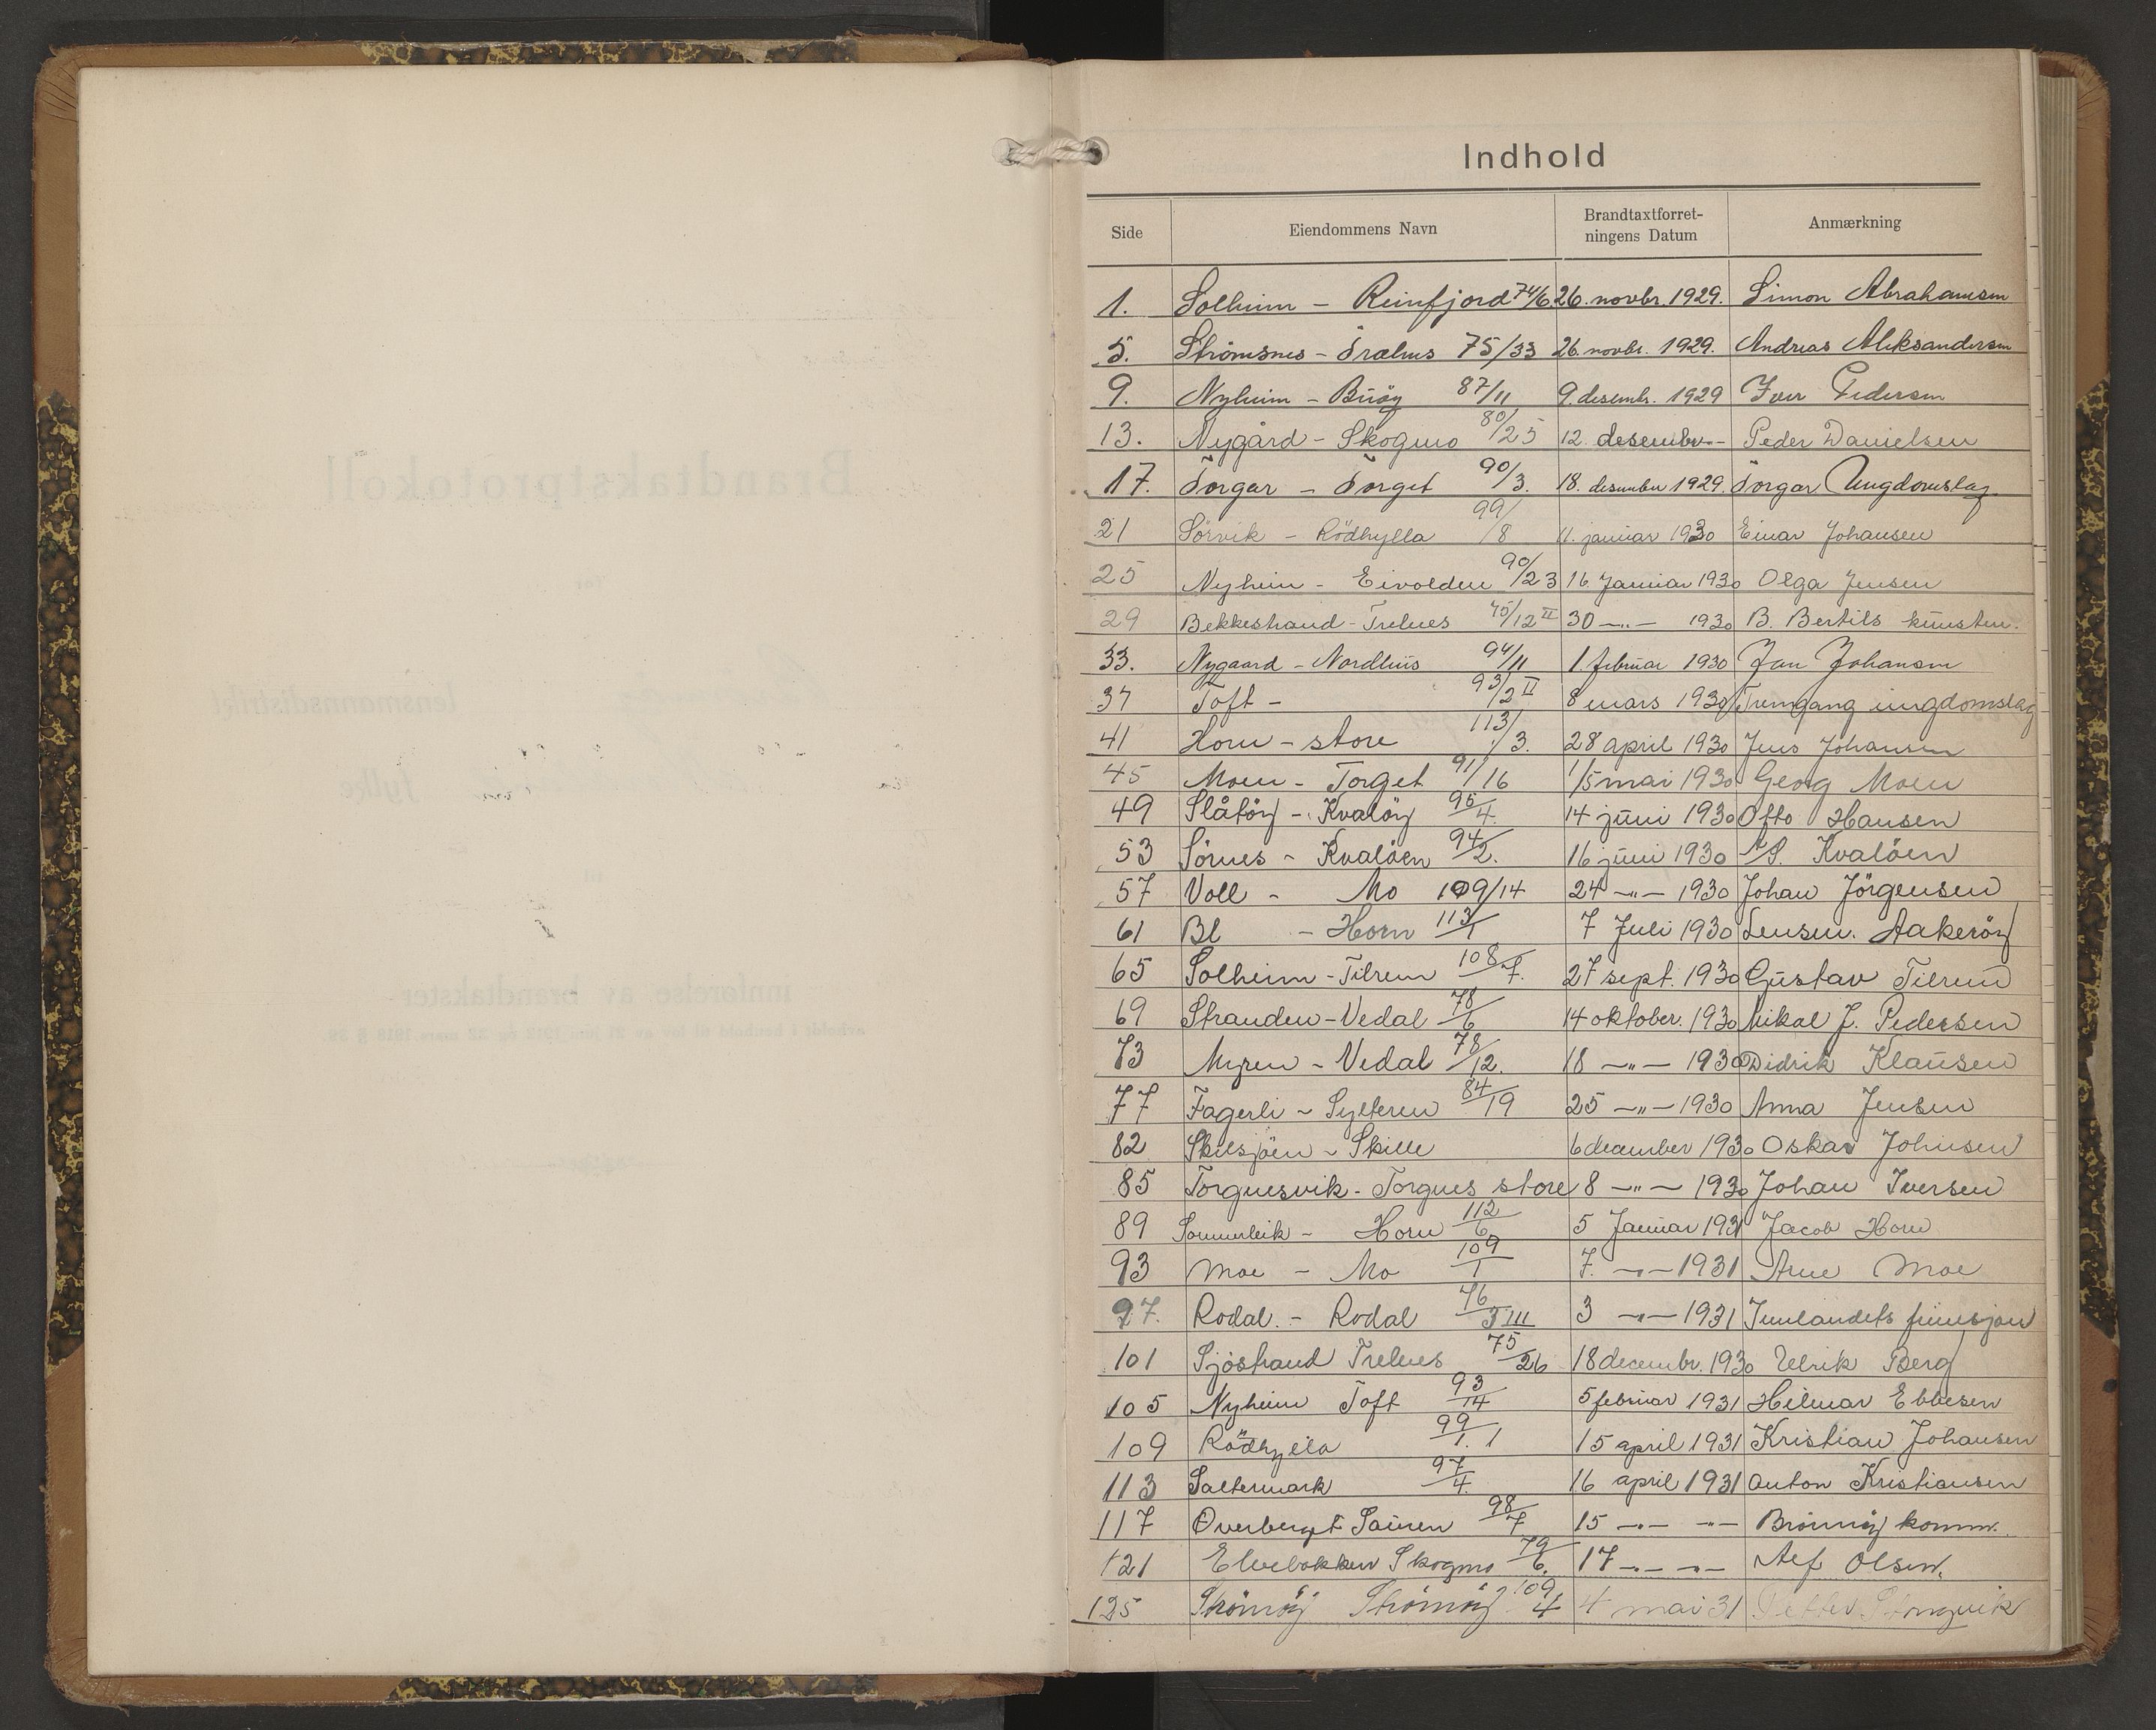 Indhold
Side Eiendommens Navn Brandtaxtforret-ningens Datum Anmærkning
1. Solheim - Reinfjord 74/6 26. novbr. 1929. Simon Abrahamsen
5. Strömsnes - Trælnes 75/33 26. novbr. 1929. Andreas Aleksandersen
9. Nyheim - Buöy 87/11 9. desembr. 1929 Iver Pedersen
13. Nygård - Skogmo 80/25 12. desembr - Peder Danielsen
17. Torgar - Torget 90/3. 18. desember 1929. Torgar Ungdomslag.
21 Sörvik - Rödhylla 99/8 11. januar 1930 Einar Johansen
25 Nyheim - Eivolden 90/23 16 Januar 1930 Olga Jensen
29 Bekkestrand - Trelnes 75/12 II 30 -"- 1930 B. Bertils
33. Nygaard - Nordhus 94/11 1. februar 1930 Jan Johansen
37 Toft - 93/2 II 8 mars 1930 Fremgang ungdomslag
41 Horn - store 113/3. 28 april 1930 Jens Johansen
45 Moen - Torget 91/16 1/5 mai 1930 Georg Moen
49 Slåtöy - Kvalöy 95/4. 14 juni 1930 Otto Hansen
53 Sörnes - Kvalöen 94/2. 16 juni 1930 A/S. Kvalöen
57 Voll - Mo 109/14 24 -"- 1930 Johan Jörgensen
61 Bl - Horn 113/1 7 Juli 1930 Lensm. Aakeröy
65 Solheim - Tilrem 108/7. 27 sept. 1930 Gustav Tilrem
69 Stranden - Vedal 78/6 14 oktober. 1930 Nikal J. Pedersen
73 Myren - Vedal 78/12. 18 -"- 1930 Didrik Klausen
77 Fagerli - Sylteren 84/19 25 -"- 1930 Anna Jensen
82 Skilsjöen - Skille 6 december 1930 Oskar Johnsen
85 Torgnesvik - Torgnes store 8 -"- 1930 Johan Iversen
89 Sommerleik - Horn 112/6 5 Januar 1931 Jacob Horn
93 Moe - Mo 109/1 7. -"- 1931 Arne Moe
97. Rodal. - Rodal 76/3 III 3 -"- 1931 Jnnlandets
101 Sjöstrand Trelnes 75/26 18 decembr. 1930 Ulrik Berg
105 Nyheim Toft 93/14 5 februar 1931 Hilmar Ebbesen
109 Rödhylla 99/1. 1 15 april 1931 Kristian Johansen
113 Saltermark 97/4. 16 april 1931 Anton Kristiansen
117 Overberget Sauren 98/7 15 -"- -"- Brönnöy komm.
121 Elvebakken Skogmo 79/6. 17 -"- -"- Alf Olsen.
125 Strömöy Strömöy 109/4 4 mai 31 Petter
Brandtakstprotokoll
for
lensmannsdistrikt
fylke
til
innførelse av brandtakster